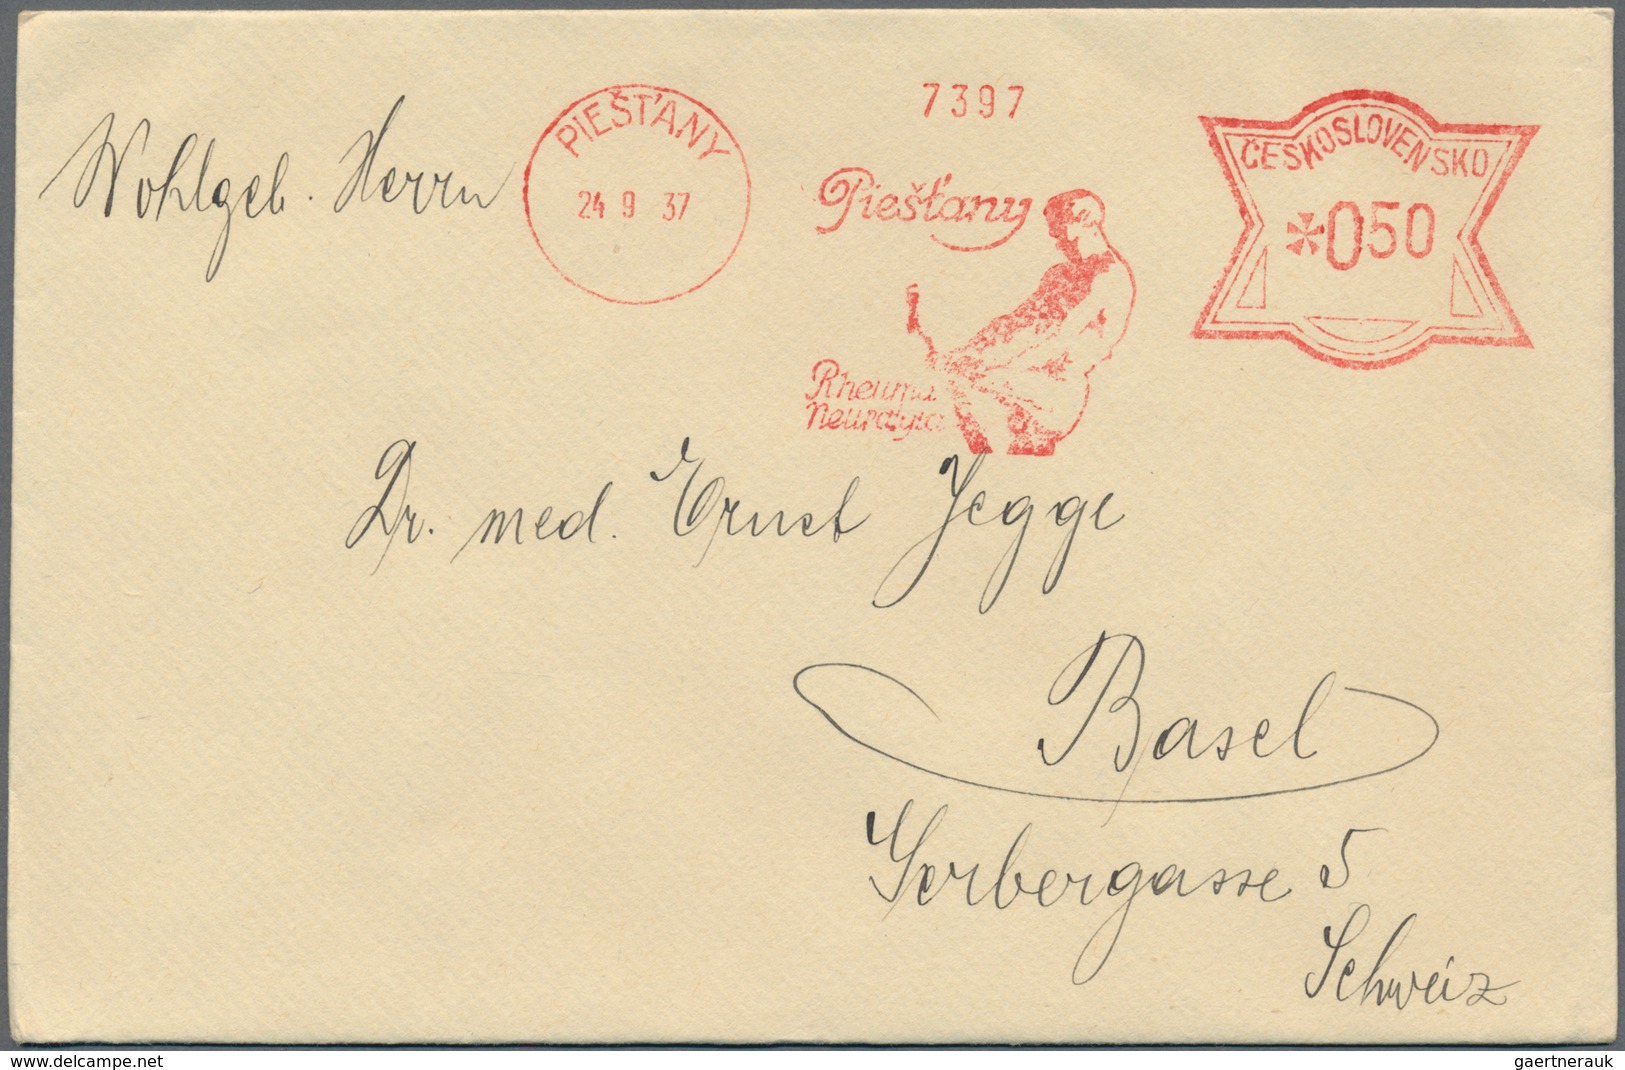 PIEŠŤANY
24 9 37
7397
Piešťany
Rheuma
Neuralgia
ČESKOSLOVENSKO
*050
Wohlgeb. Herrn
Dr. med. Ernst Jegge
Basel
Gerbergasse 5
Schweiz
www.delcampe.net
gaertnerauk